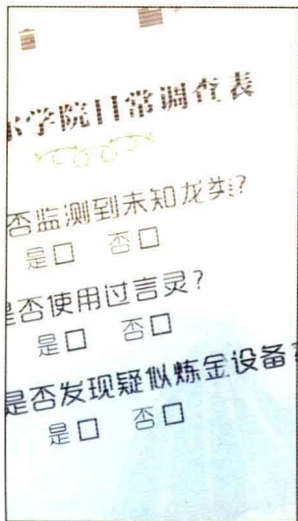 尔学院日常调查表
否监测到未知龙类?
是□ 否□
是否使用过言灵?
是□ 否□
是否发现疑似炼金设备?
是□ 否□